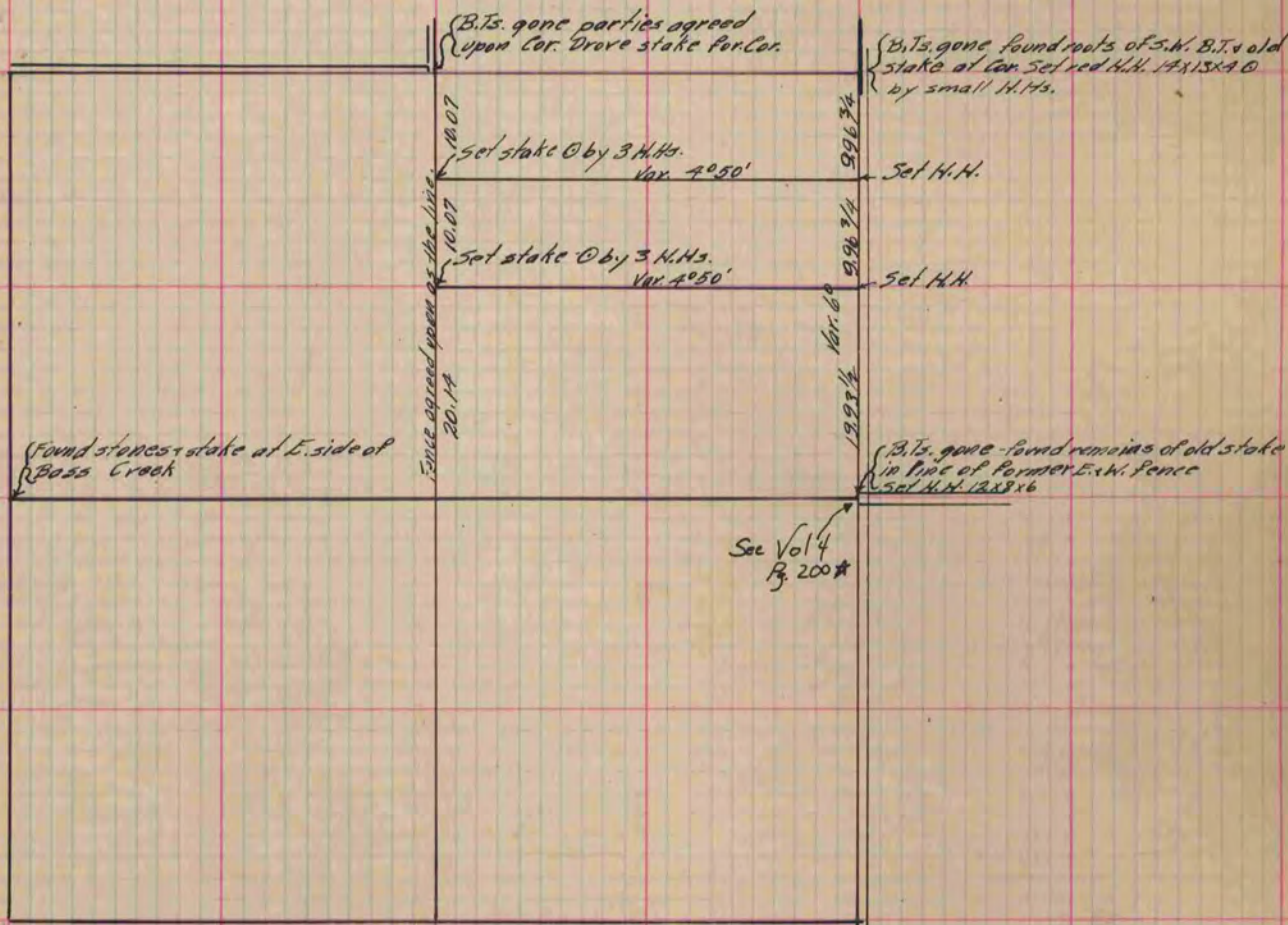 B.Ts. gone parties agreed
upon Cor. Drove stake for Cor.
B.Ts. gone found roots of S.W. B.T. & old
stake at Cor. Set red H.H. 14x13x4 ⊙
by small H.Hs.
10.07
9.96 3/4
Set stake ⊙ by 3 H.Hs.
Var. 4°50'
Set H.H.
Fence agreed upon as the line.
10.07
9.96 3/4
Set stake ⊙ by 3 H.Hs.
Var. 4°50'
Set H.H.
20.14
Var. 6°
19.93 1/2
Found stones & stake at E. side of
Bass Creek
B.Ts. gone - found remains of old stake
in line of former E. & W. fence
Set H.H. 12x8x6
See Vol 4
Pg. 200 *